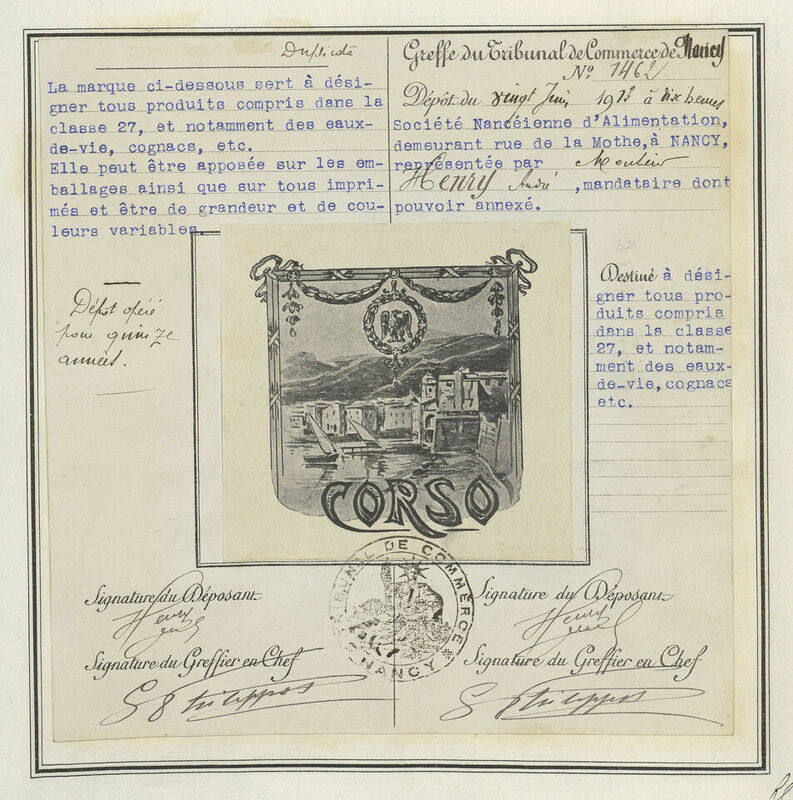 Duplicata
La marque ci-dessous sert à dési-
gner tous produits compris dans la
classe 27, et notamment des eaux-
de-vie, cognacs, etc.
Elle peut être apposée sur les em-
ballages ainsi que sur tous impri-
més et être de grandeur et de cou-
leurs variables.
Dépôt opéré
pour quinze
années.
Greffe du Tribunal de Commerce de Nancy
N° 1462
Dépôt du vingt Juin 1912 à dix heures
Société Nancéienne d'Alimentation,
demeurant rue de la Mothe, à NANCY,
représentée par Monsieur
Henry André, mandataire dont
pouvoir annexé.
Destiné à dési-
gner tous pro-
duits compris
dans la classe
27, et notam-
ment des eaux-
de-vie, cognacs
etc.
CORSO
TRIBUNAL DE COMMERCE
NANCY
Signature du Déposant
Henry
Signature du Greffier en Chef
Signature du Déposant
Henry
Signature du Greffier en Chef